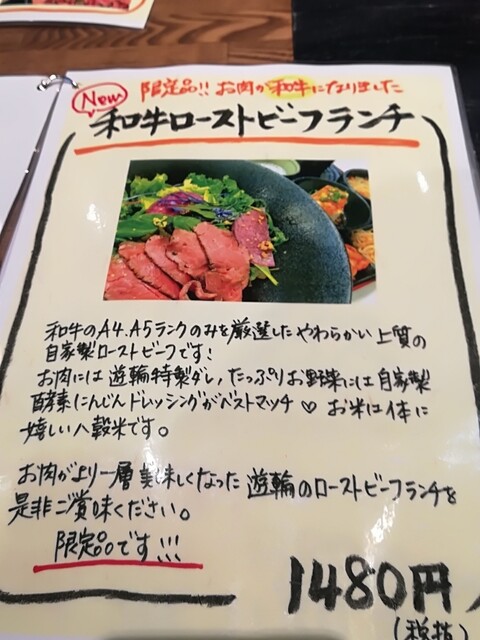 New
限定品!! お肉が和牛になりました
和牛ローストビーフランチ
和牛のA4.A5ランクのみを厳選したやわらかい上質の
自家製ローストビーフです!
お肉には遊輪特製ダレ,たっぷりお野菜には自家製
酵素にんじんドレッシングがベストマッチ♡ お米は体に
嬉しい八穀米です。
お肉がより一層美味しくなった遊輪のローストビーフランチを
是非ご賞味ください。
限定品です!!!
1480円
(税抜)